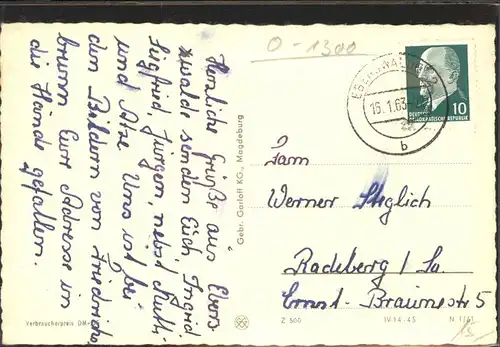 Herzliche Grüße aus Ebers-
walde senden Euch, Ingrid
Siegfrid, Jürgen, nebst Ruth
und Atze. Uns ist bei
den Bildern von Friedrichs
brunn Eure Adresse in
die Hände gefallen.
Gebr. Garloff KG., Magdeburg
O-1300
EBERSWALDE
16.1.63
b
10
DEUTSCHE
DEMOKRATISCHE REPUBLIK
Fam
Werner Steglich
Radeberg / Sa
Ernst-Braunestr 5
Verbraucherpreis DM
Z 500
IV-14-45